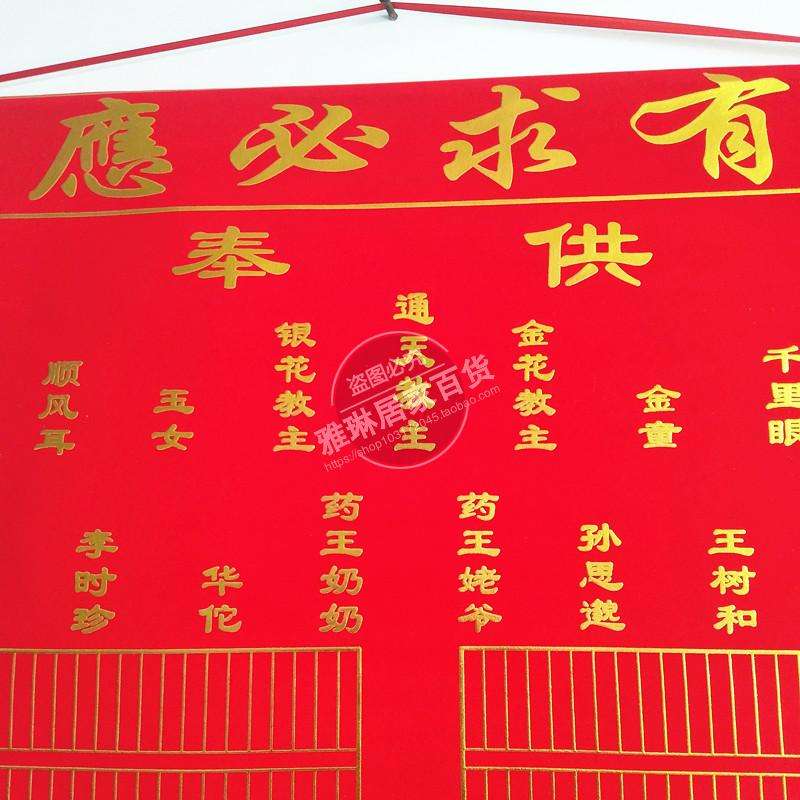 有求必應
供奉
千里眼
金童
金花教主
通天教主
银花教主
玉女
顺风耳
王树和
孙思邈
药王姥爷
药王奶奶
华佗
李时珍
盗图必究
雅琳居家百货